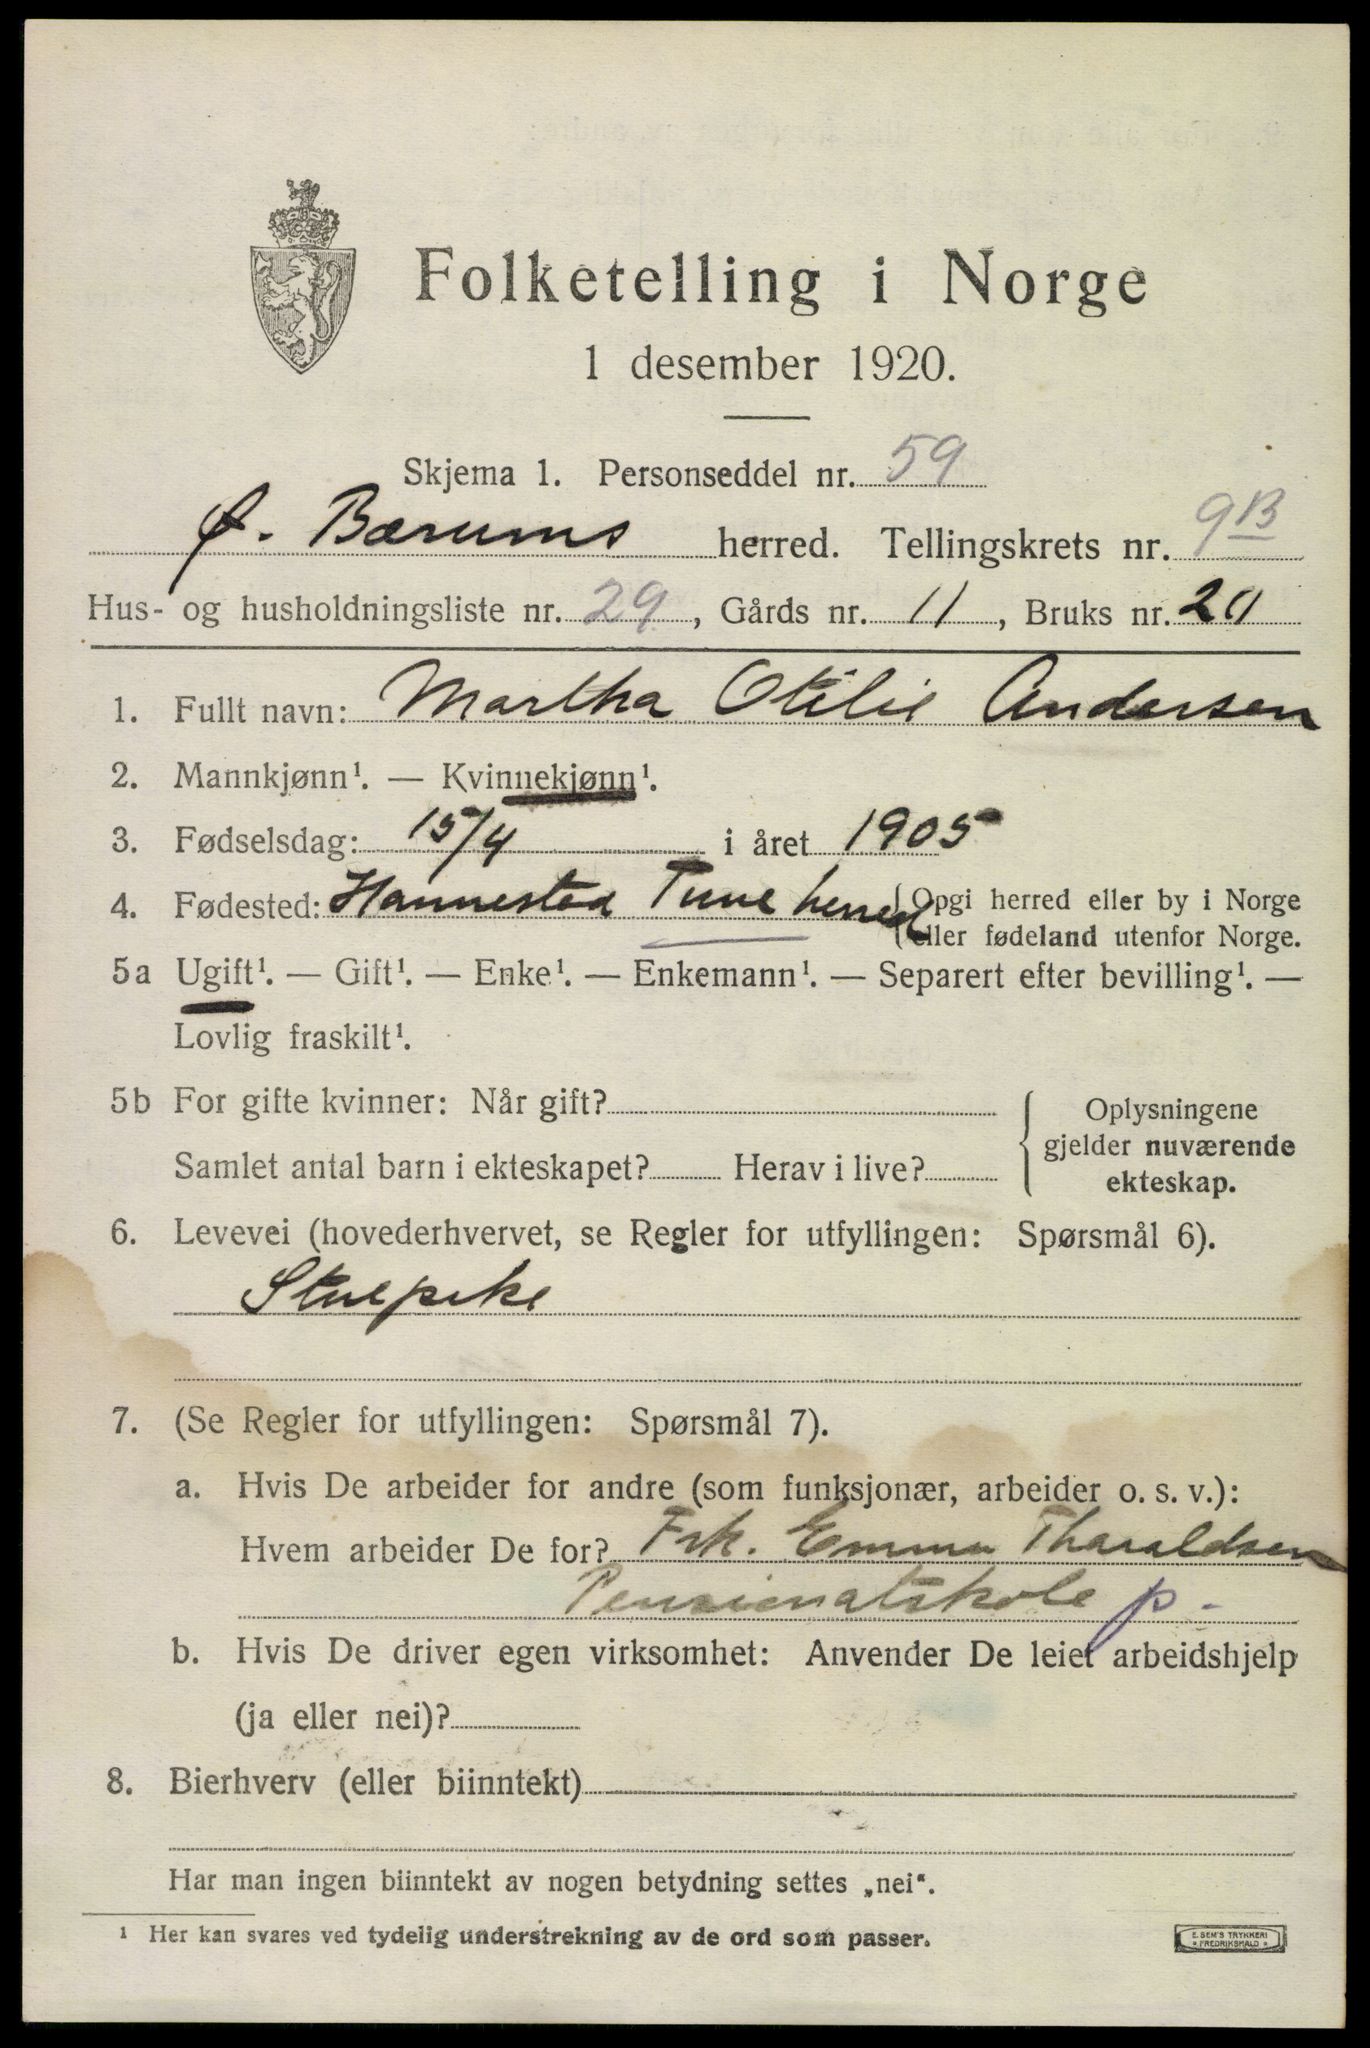 Folketelling i Norge
1 desember 1920.
Skjema 1. Personseddel nr. 59
Ø. Bærums herred. Tellingskrets nr. 9B
Hus- og husholdningsliste nr. 29, Gårds nr. 11, Bruks nr. 20
1. Fullt navn: Martha Otilie Andersen
2. Mannkjønn¹. — Kvinnekjønn¹.
3. Fødselsdag: 15/4 i året 1905
4. Fødested: Hannestad Tune herred { Opgi herred eller by i Norge
eller fødeland utenfor Norge.
5a Ugift¹. — Gift¹. — Enke¹. — Enkemann¹. — Separert efter bevilling¹. —
Lovlig fraskilt¹.
5b For gifte kvinner: Når gift?
Samlet antal barn i ekteskapet? Herav i live?
{ Oplysningene
gjelder nuværende
ekteskap.
6. Levevei (hovederhvervet, se Regler for utfyllingen: Spørsmål 6).
Stuepike
7. (Se Regler for utfyllingen: Spørsmål 7).
a. Hvis De arbeider for andre (som funksjonær, arbeider o. s. v.):
Hvem arbeider De for? Frk. Emma Tharaldsen
Pensionatskole p.
b. Hvis De driver egen virksomhet: Anvender De leiet arbeidshjelp
(ja eller nei)?
8. Bierhverv (eller biinntekt)
Har man ingen biinntekt av nogen betydning settes „nei“.
¹ Her kan svares ved tydelig understrekning av de ord som passer.
E. SEM'S TRYKKERI
• FREDRIKSHALD •